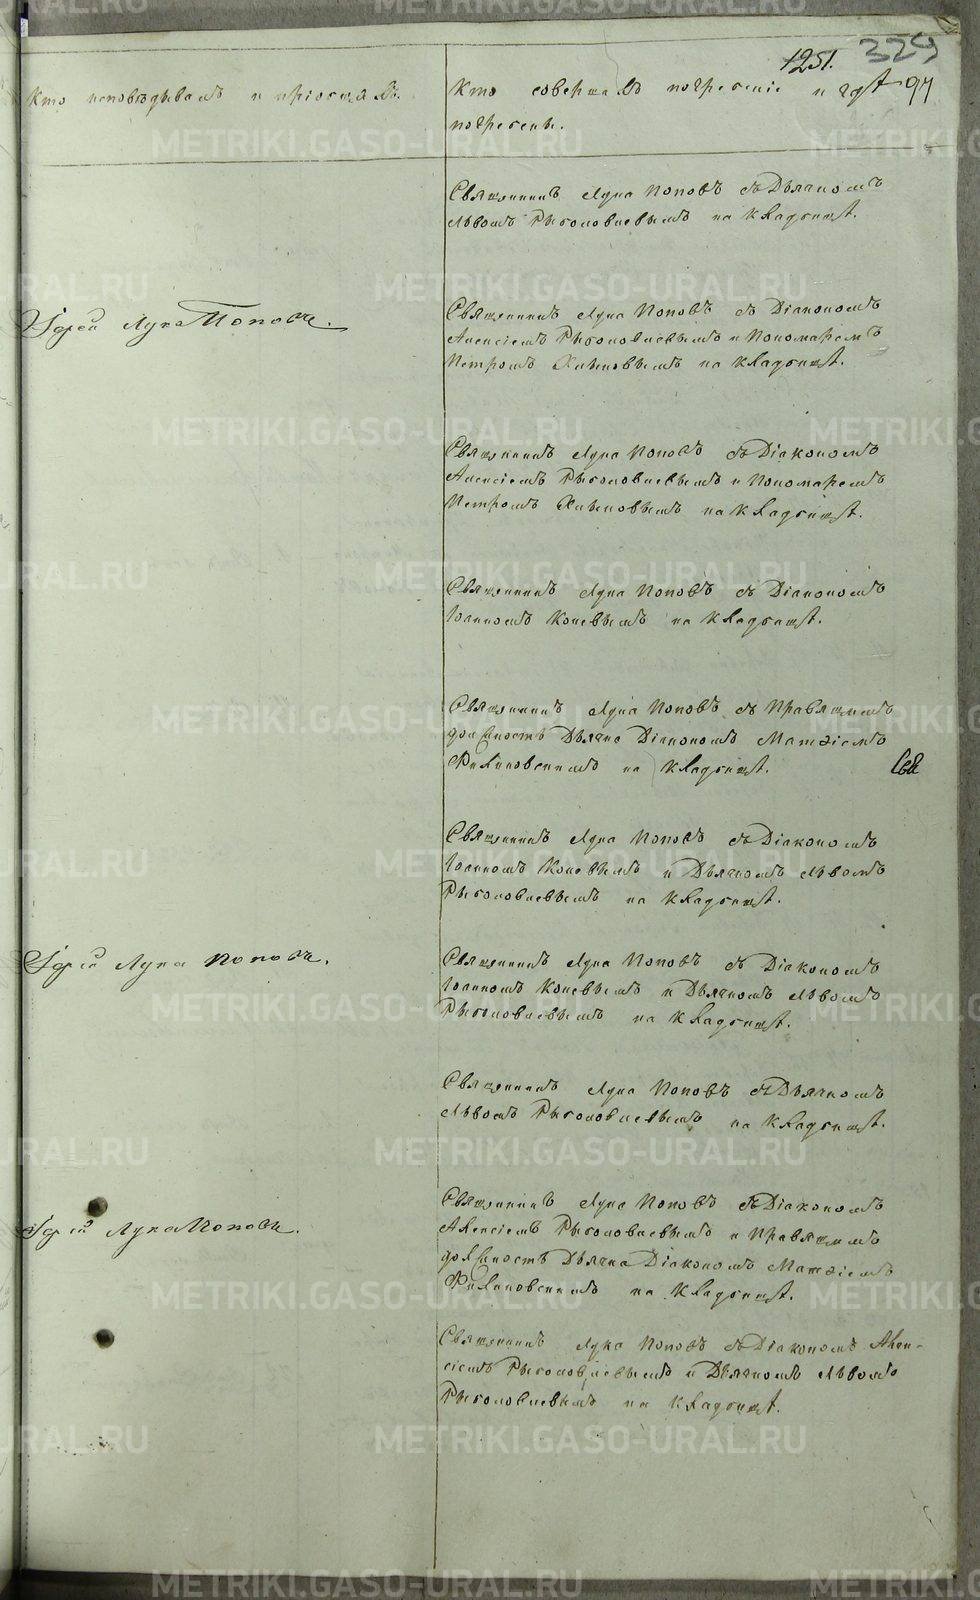 1251. 329
97
Кто исповѣдывалъ и приобщалъ.
Кто совершалъ погребеніе и гдѣ
погребены.
Священникъ Лука Поповъ съ Дьячкомъ
Львомъ Рыболовлевымъ на кладбищѣ.
Іерей Лука Поповъ.
Священникъ Лука Поповъ съ Діакономъ
Алексіемъ Рыболовлевымъ и Пономаремъ
Петромъ Хлыновымъ на кладбищѣ.
Священникъ Лука Поповъ съ Діакономъ
Алексіемъ Рыболовлевымъ и Пономаремъ
Петромъ Хлыновымъ на кладбищѣ.
Священникъ Лука Поповъ съ Діакономъ
Іоанномъ Коневымъ на кладбищѣ.
Священникъ Лука Поповъ съ Правящимъ
должность Дьячка Діакономъ Матѳіемъ
Филиновскимъ на кладбищѣ.
Священникъ Лука Поповъ съ Діакономъ
Іоанномъ Коневымъ и Дьячкомъ Львомъ
Рыболовлевымъ на кладбищѣ.
Іерей Лука Поповъ.
Священникъ Лука Поповъ съ Діакономъ
Іоанномъ Коневымъ и Дьячкомъ Львомъ
Рыболовлевымъ на кладбищѣ.
Священникъ Лука Поповъ съ Дьячкомъ
Львомъ Рыболовлевымъ на кладбищѣ.
Іерей Лука Поповъ.
Священникъ Лука Поповъ съ Діакономъ
Алексіемъ Рыболовлевымъ и Правящимъ
должность Дьячка Діакономъ Матѳіемъ
Филиновскимъ на кладбищѣ.
Священникъ Лука Поповъ съ Діакономъ Алек-
сіемъ Рыболовлевымъ и Дьячкомъ Львомъ
Рыболовлевымъ на кладбищѣ.
METRIKI.GASO-URAL.RU